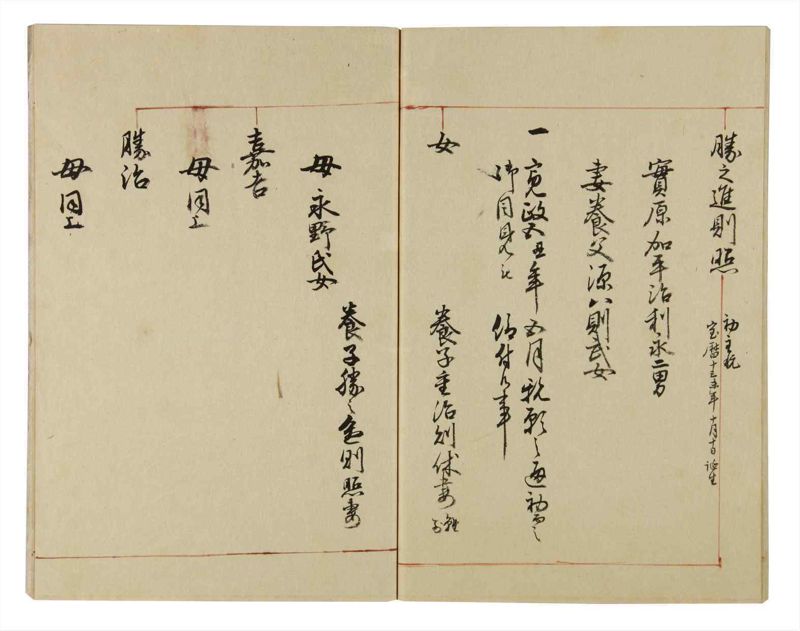 勝之進則照
初主税
宝暦十三未年十月十日誕生
實原加平治利永二男
妻養父源八則武女
一寛政五丑年五月 願之通初而之
御目見被 仰付候事
女
養子主治則 妻
母永野氏女
養子勝之進則照妻
嘉吉
母同上
勝治
母同上